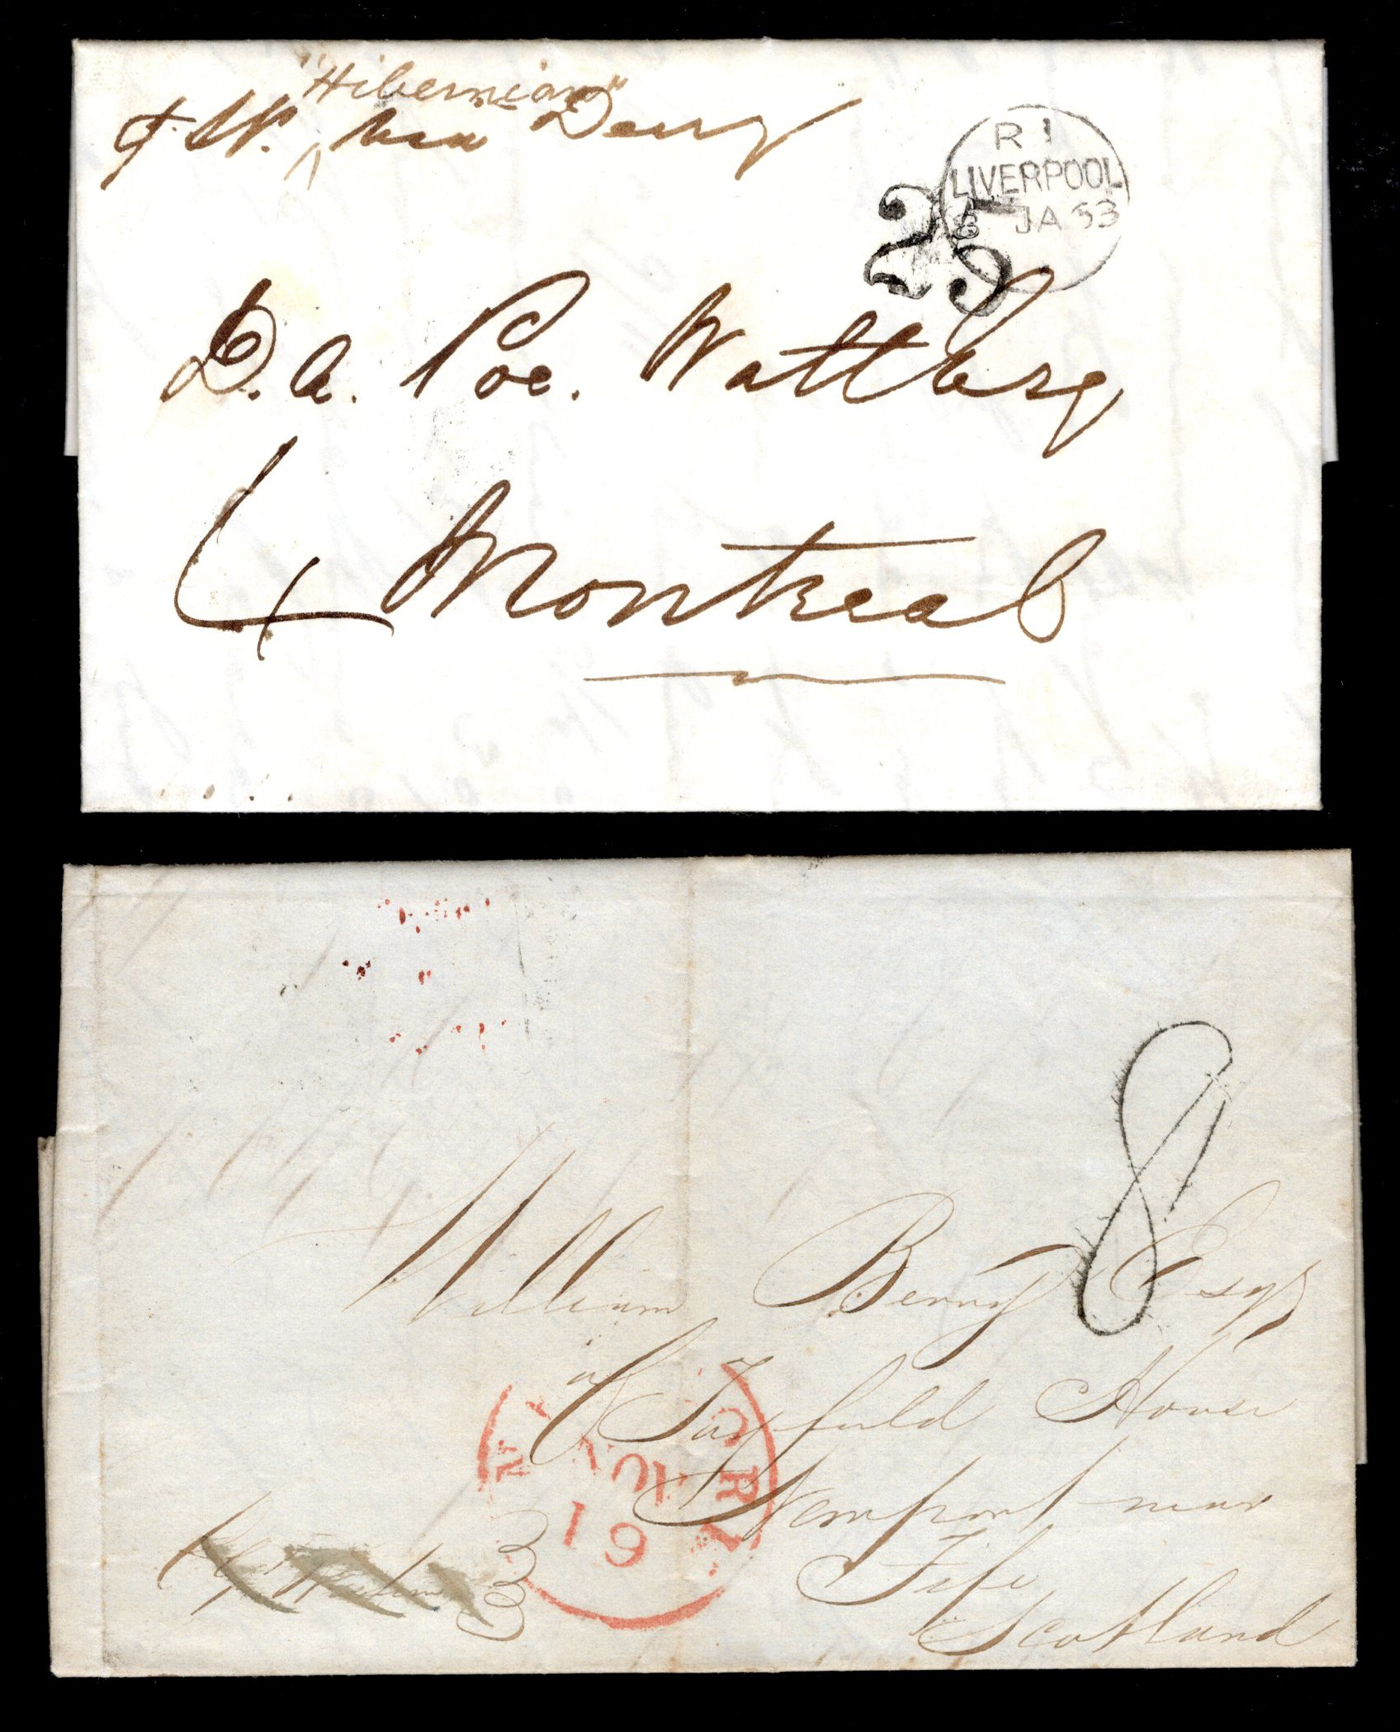 "Hibernian"
via Derry
R 1
LIVERPOOL
8 JA 63
25
D. A. Poe. Watt Esq
Montreal
8
William Berry Esqr
of Tayfield House
Newport near
Fife
Scotland
NOV
19